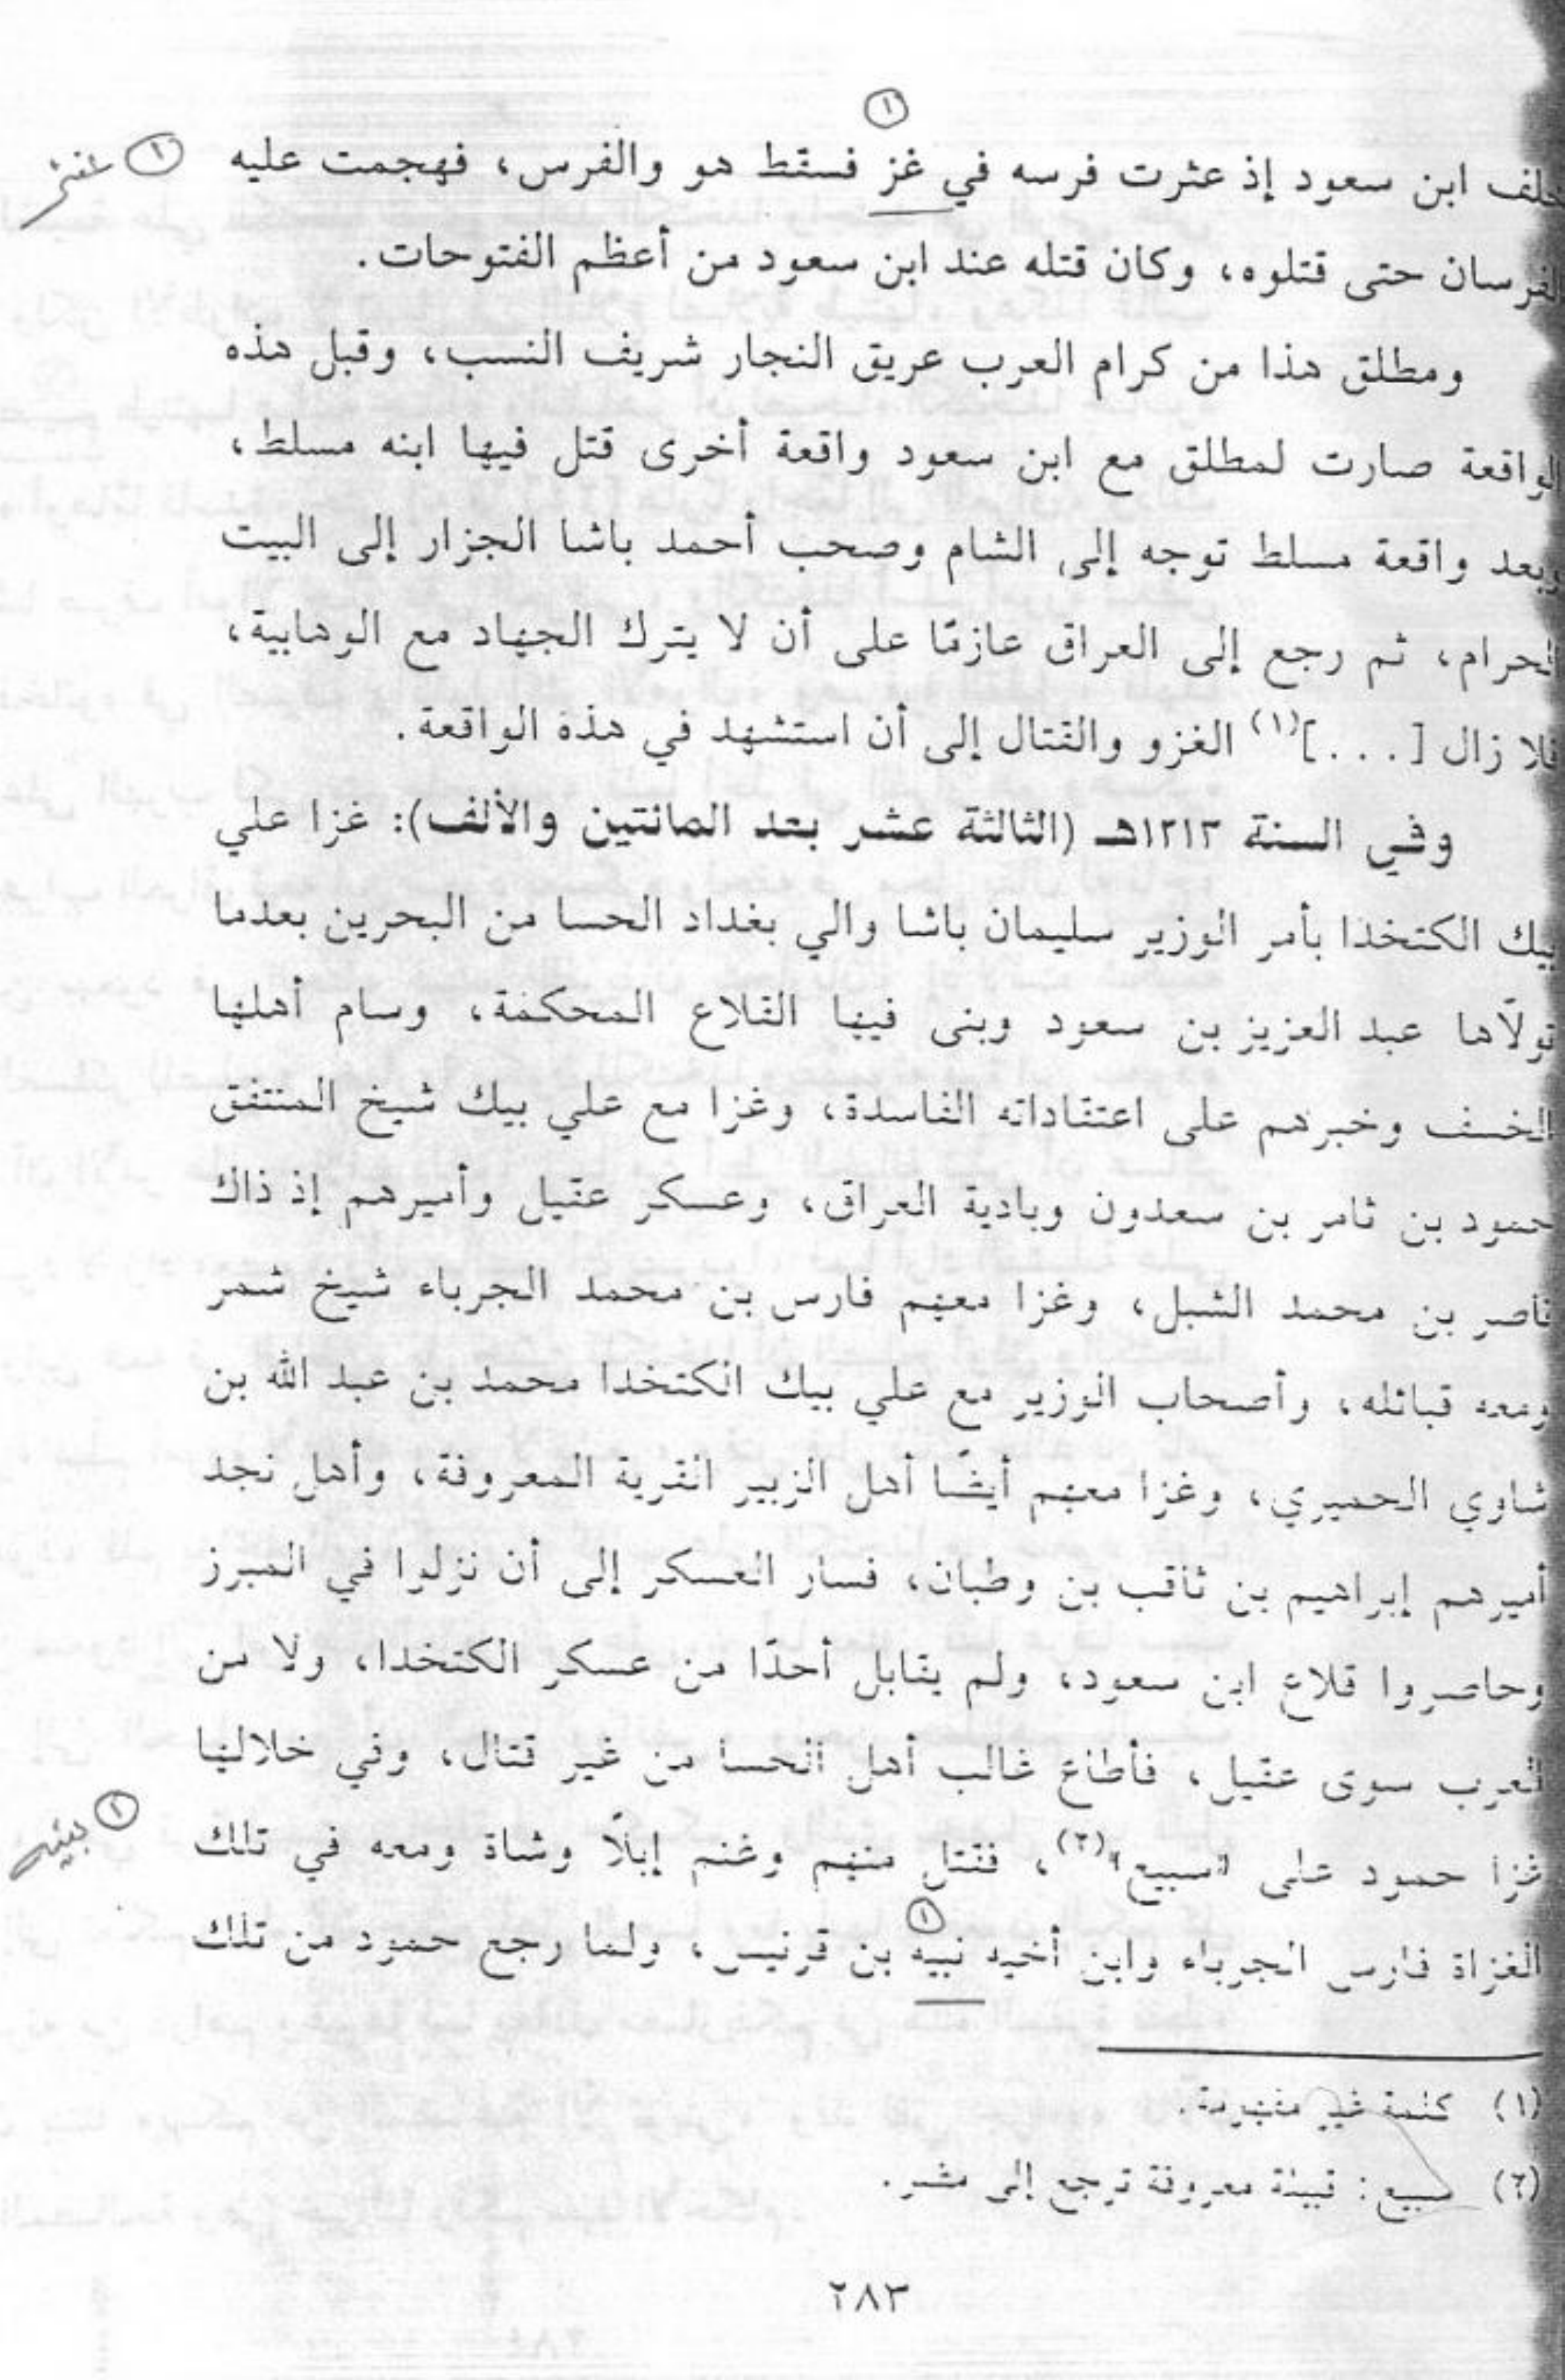 ①
خلف ابن سعود إذ عثرت فرسه في غز فسقط هو والفرس، فهجمت عليه ①
الفرسان حتى قتلوه، وكان قتله عند ابن سعود من أعظم الفتوحات.
ومطلق هذا من كرام العرب عريق النجار شريف النسب، وقبل هذه
الواقعة صارت لمطلق مع ابن سعود واقعة أخرى قتل فيها ابنه مسلط،
وبعد واقعة مسلط توجه إلى الشام وصحب أحمد باشا الجزار إلى البيت
الحرام، ثم رجع إلى العراق عازمًا على أن لا يترك الجهاد مع الوهابية،
فلا زال [...](١) الغزو والقتال إلى أن استشهد في هذه الواقعة.
وفي السنة ١٢١٣هـ (الثالثة عشر بعد المائتين والألف): غزا علي
بيك الكتخدا بأمر الوزير سليمان باشا والي بغداد الحسا من البحرين بعدما
تولّاها عبد العزيز بن سعود وبنى فيها القلاع المحكمة، وسام أهلها
الخسف وخبرهم على اعتقاداته الفاسدة، وغزا مع علي بيك شيخ المنتفق
حمود بن ثامر بن سعدون وبادية العراق، وعسكر عقيل وأميرهم إذ ذاك
ناصر بن محمد الشبل، وغزا معهم فارس بن محمد الجرباء شيخ شمر
ومعه قبائله، وأصحاب الوزير مع علي بيك الكتخدا محمد بن عبد الله بن
شاوي الحميري، وغزا معهم أيضًا أهل الزبير القرية المعروفة، وأهل نجد
أميرهم إبراهيم بن ثاقب بن وطبان، فسار العسكر إلى أن نزلوا في المبرز
وحاصروا قلاع ابن سعود، ولم يقابل أحدًا من عسكر الكتخدا، ولا من
العرب سوى عقيل، فأطاع غالب أهل الحسا من غير قتال، وفي خلالها
غزا حمود على «سبيع»(٢)، فقتل منهم وغنم إبلًا وشاة ومعه في تلك
الغزاة فارس الجرباء وابن أخيه نبيه بن قرنيس، ولما رجع حمود من تلك
(١) كلمة غير مفهومة.
(٢) سبيع: قبيلة معروفة ترجع إلى مضر.
٢٨٣